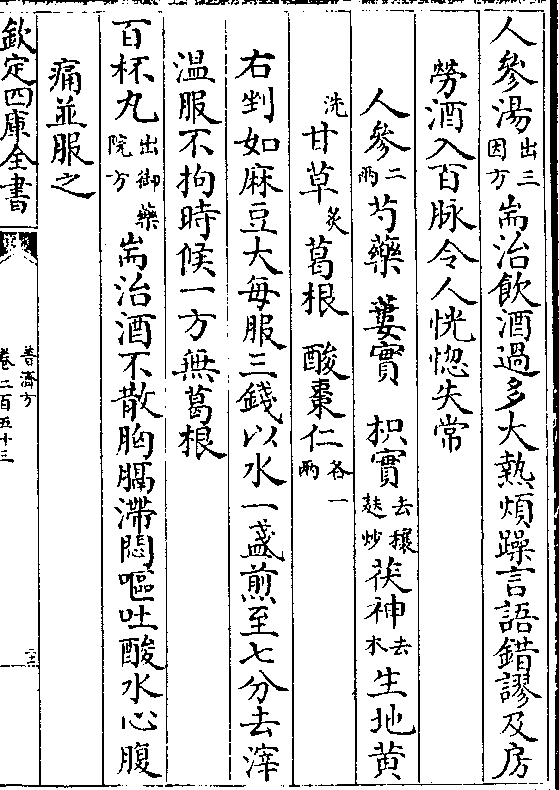 人參湯出三因方耑治飲酒過多大熱煩躁言語錯謬及房
勞酒入百脉令人恍惚失常
人參二兩芍藥 蔞實 枳實去穰麸炒茯神去木生地黄
洗甘草炙葛根 酸棗仁各一兩
右剉如麻豆大每服三錢以水一盞煎至七分去滓
温服不拘時候一方無葛根
百杯丸出御藥院方耑治酒不散胸膈滯悶嘔吐酸水心腹
痛並服之
欽定四庫全書
普濟方
卷二百五十三